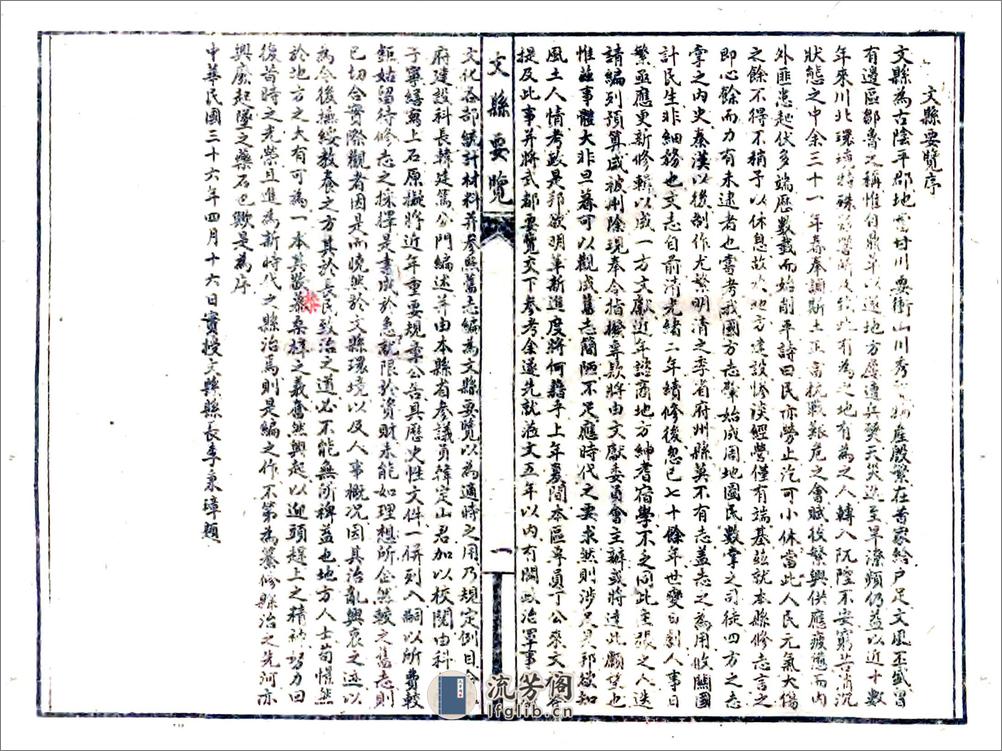 文縣要覽序
文縣為古陰平郡地當甘川要衝山川秀 物產殷繁在昔家給户足文風丕盛習
有邊區鄒魯之稱惟自鼎革以還地方屢遭兵燹天災迭至旱潦頻仍益以近十數
年來川北環境特殊 此有為之地有為之人轉入阢隉不安窮苦消沉
狀態之中余三十一年春奉調斯土正當抗戰艱危之會賦役繁興供應疲憊而內
外匪患起伏多端歷數載而始削平詩曰民亦勞止汔可小休當此人民元氣大傷
之餘不得不稍予以休息故以地方建設慘淡經營僅有端基茲就本縣修志言之
即心餘而力有未逮者也嘗考我國方志肇始成周地國民數掌之司徒四方之志
掌之內史秦漢以後制作尤繁明清之季省府州縣莫不有志蓋志之為用攸關國
計民生非細務也文志自前清光緒二年續修後忽已七十餘年世變日劇人事日
繁亟應更新修輯以成一方文獻近年諮商地方紳耆宿學不乏同此主張之人迭
請編列預算咸被刪除現奉令指撥專款將由文獻委員會主辦或將達此願望也
惟茲事體大非旦暮可以觀成舊志簡陋不足應時代之要求然則涉足是邦欲知
風土人情考政是邦欲明革新進度將何藉乎上年夏間本區專員丁公來文
提及此事并將武都要覽交下參考余遂先就蒞文五年以內有關政治軍事
文縣要覽
一
文化各部統計材料并參照舊志編為文縣要覽以為適時之用乃規定例目
府建設科長韓建篤公門編述并由本縣省參議員韓定山君加以校閱由科
予寧繕寫上石原擬將近年重要規章公告具歷史性文件一併列入嗣以所費較
鉅姑留待修志之採擇是書成於急就限於資財未能如理想所企然較之舊志則
已切合實際觀者因是而曉然於文縣環境以及人事概況因其治亂興衰之迹以
為今後撫綏教養之方其於長民致治之道必不能無所裨益也地方人士苟憬然
於地方之大有可為一本其敬恭桑梓之義奮然興起以迎頭趕上之精神努力回
復昔時之光榮且進為新時代之縣治焉則是編之作不第為纂修縣治之先河亦
興廢起墜之藥石已歟是為序
桑
中華民國三十六年四月十六日實授文縣縣長李秉璋題
流芳阁
lfglib.cn